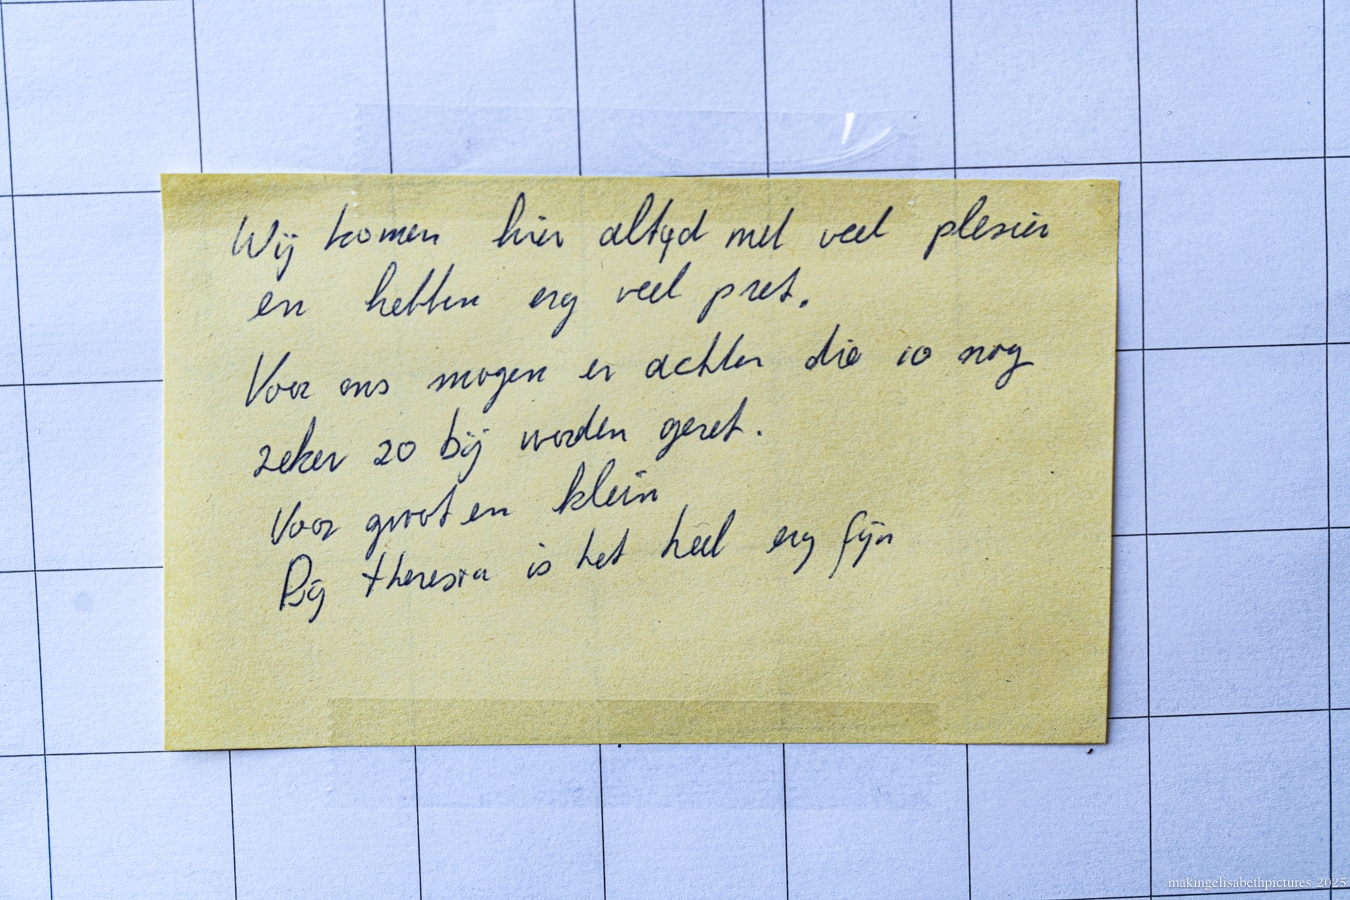 Wij komen hier altyd met veel plesier
en hebben erg veel pret.
Voor ons mogen er achter die 10 nog
zeker 20 bij worden gezet.
Voor groot en klein
Bij theresia is het heel erg fijn
makingelisabethpictures 2025